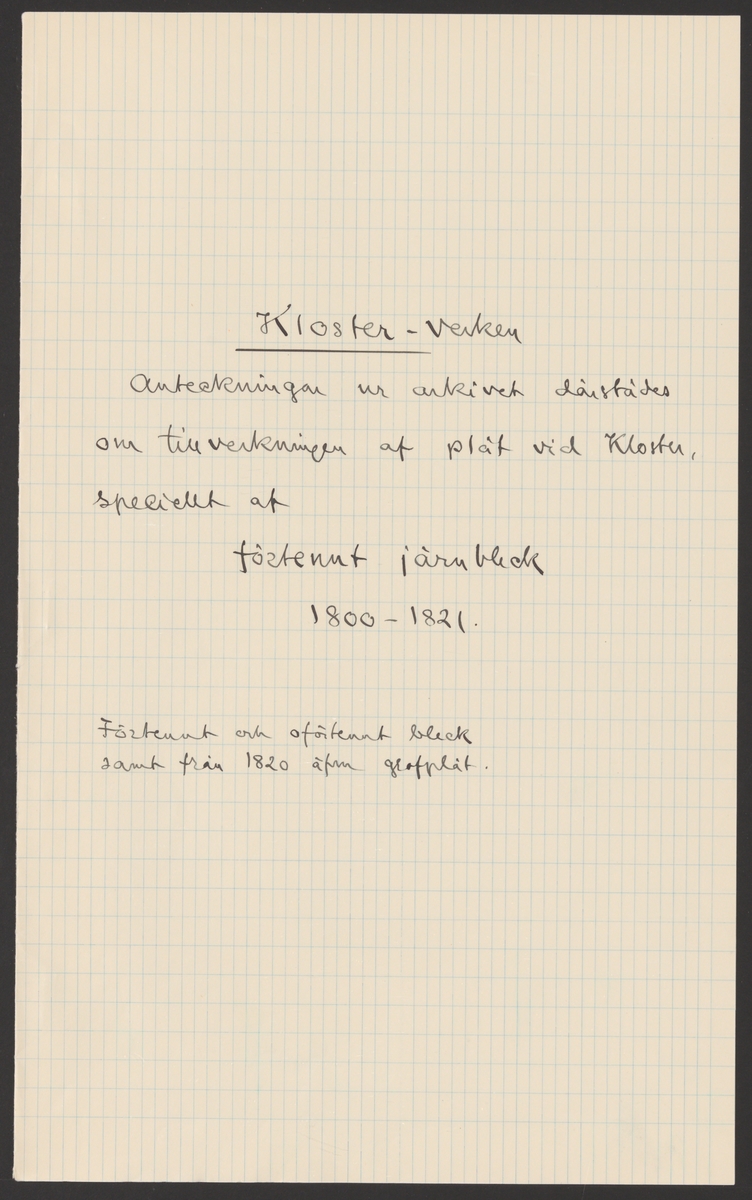 Kloster-verken
Anteckningar ur arkivet därstädes
om tillverkningen af plåt vid Kloster,
speciellt af
förtennt järnbleck
1800-1821.
Förtennt och oförtennt bleck
samt från 1820 äfven grofplåt.